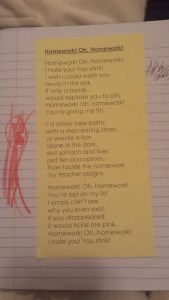 Homework! Oh, Homework!
Homework! Oh, Homework!
I hate you! You stink!
I wish I could wash you
away in the sink.
If only a bomb
would explode you to bits.
Homework! Oh, homework!
You're giving me fits.
I'd rather take baths
with a man-eating shark,
or wrestle a lion
alone in the dark,
eat spinach and liver,
pet ten porcupines,
than tackle the homework
my teacher assigns.
Homework! Oh, homework!
You're last on my list.
I simply can't see
why you even exist.
If you disappeared
it would tickle me pink.
Homework! Oh, homework!
I hate you! You stink!